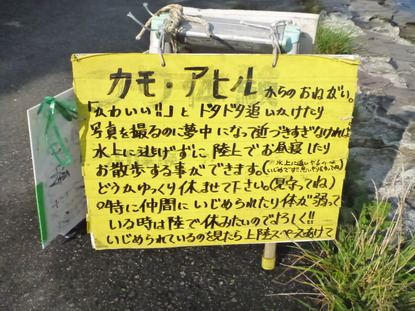 カモ・アヒルからのおねがい。
「かわいい!!」とドタドタ追いかけたり
写真を撮るのに夢中になって近づきすぎなければ
水上に逃げずに陸上でお昼寝したり
お散歩する事ができます。
どうかゆっくり休ませて下さい。(見守ってね)
時に仲間にいじめられたり体が弱って
いる時は陸で休みたいのでよろしく!!
いじめられているのを見たら上陸スペースあけて